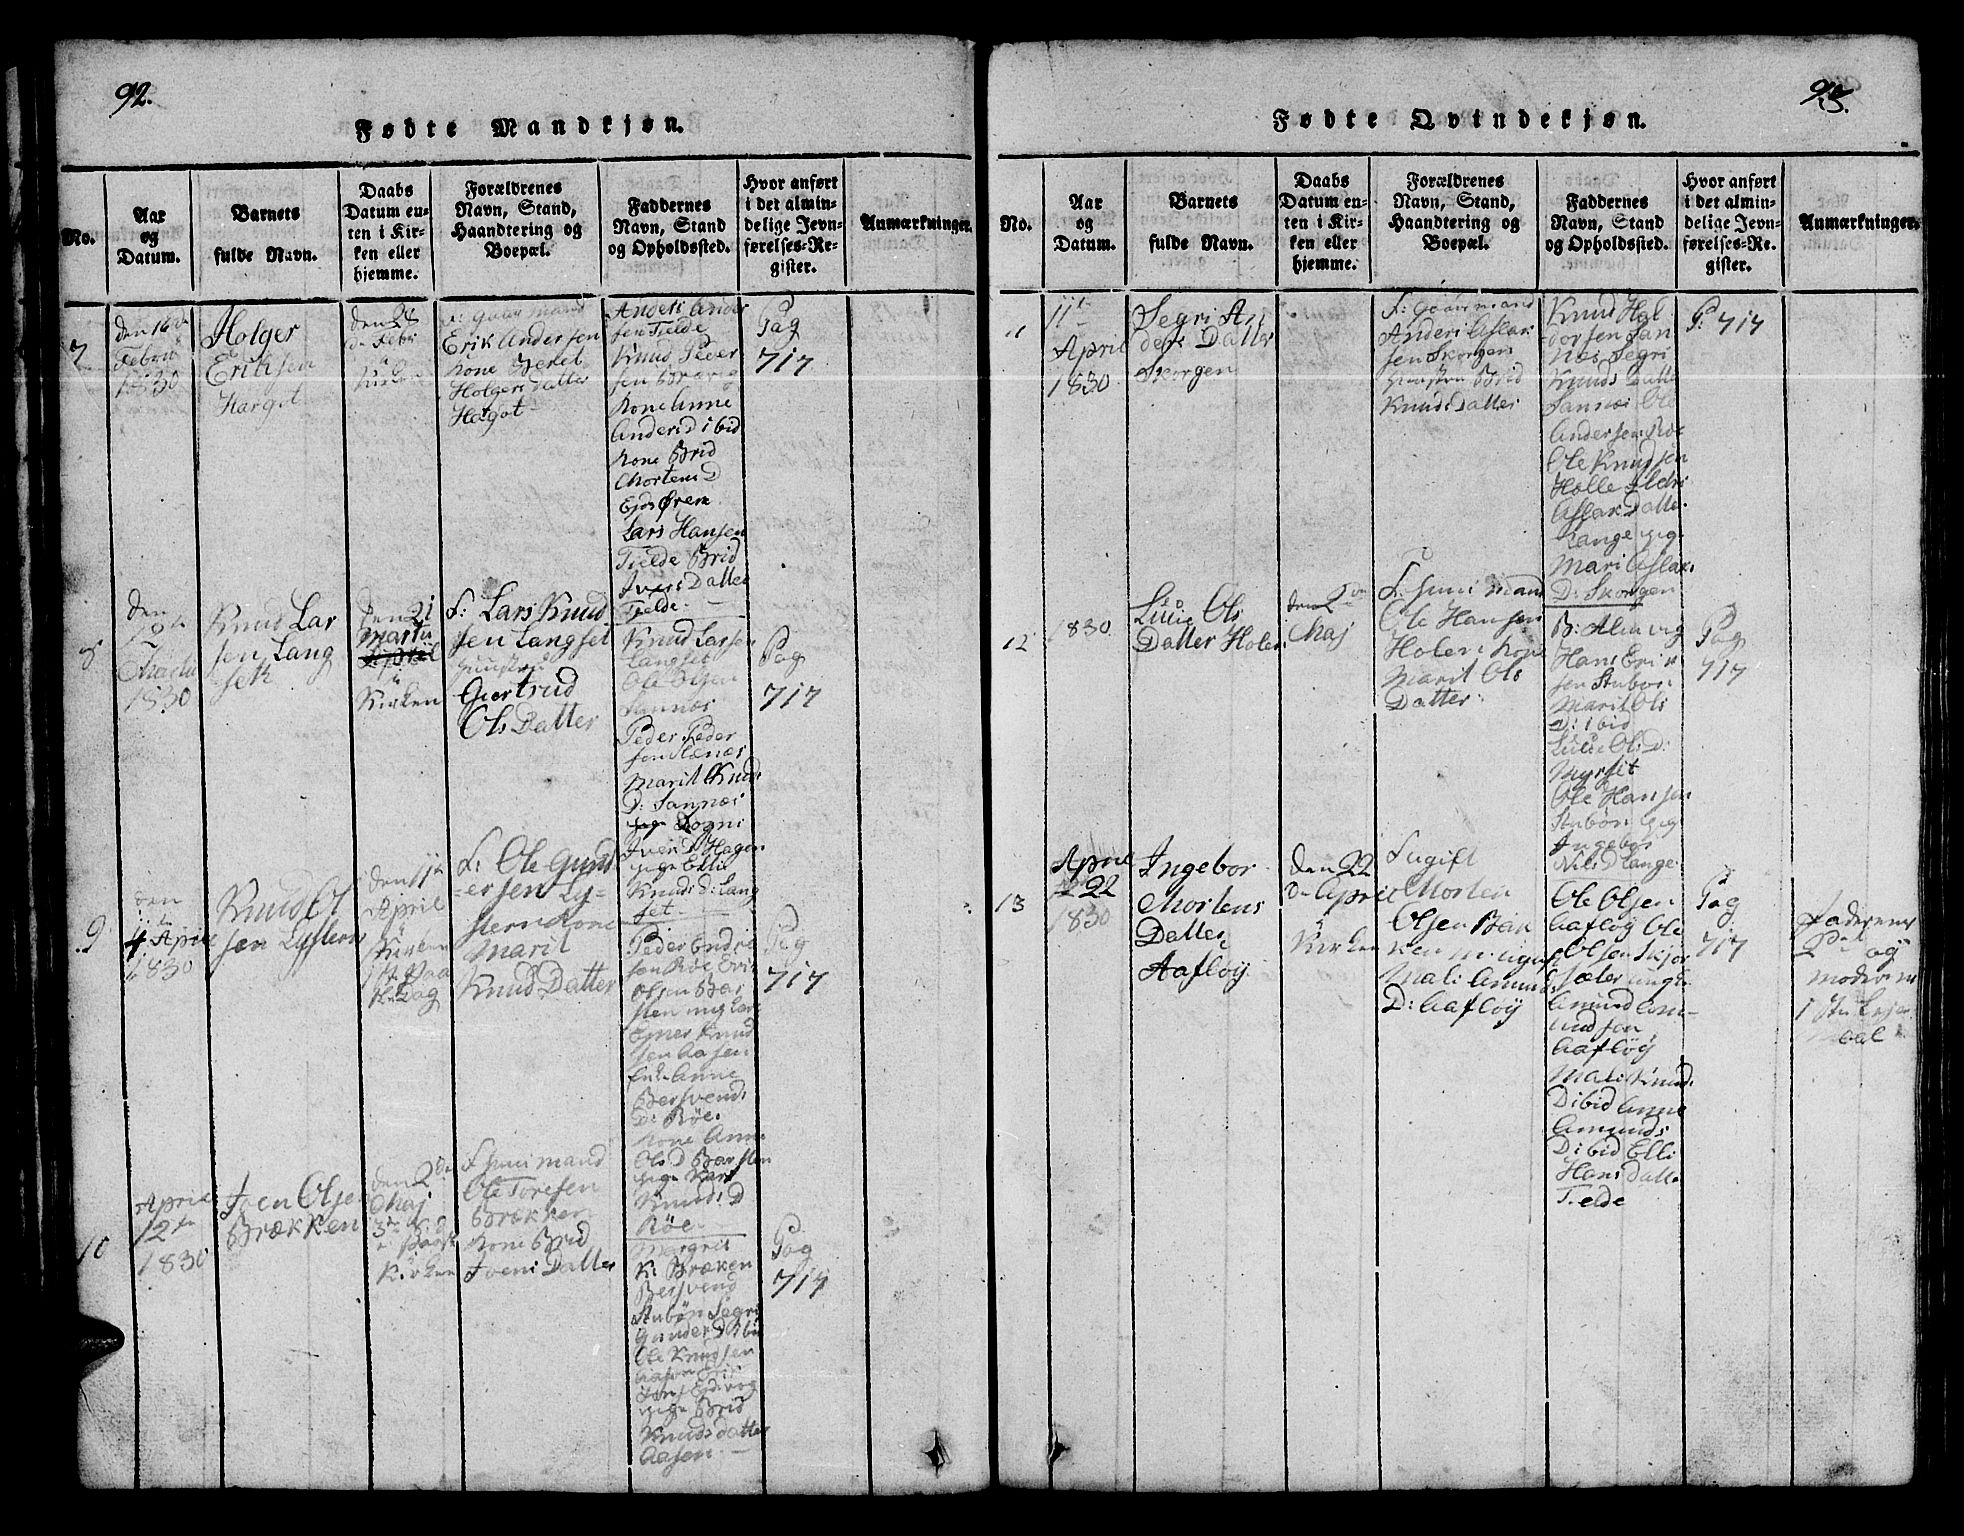 92.
Fødte Mandkjøn.
No.
Aar
og
Datum.
Barnets
fulde Navn.
Daabs
Datum en-
ten i Kir-
ken eller
hjemme.
Forældrenes
Navn, Stand,
Haandtering og
Boepæl.
Faddernes
Navn, Stand
og Opholdssted.
Hvor anført
i det almin-
delige Jevn-
førelses-Re-
gister.
Anmærkninger.
7
den 16de
Febru
1830
Holger
Eriksen
Hargot
den 28
Febr
i
Kirken
F: Gaar mand
Erik Andersen
Kone Beret
Holgers Datter
Hargot
Anders Ander
sen Tielde
Knud Peder
sen Bræveg
Kone Anne
Anders D ibid
Kone Brid
Mortens D
Eids Ørem
Lars Hansen
Tielde Brid
Ivers Datter
Tielde.
Pag
717
8
den
12te
Martii
1830
Knud Lar
sen Lang
set
Den 21
Martii
April
i
Kirken
F: Lars Knud
sen Langset
Huustrue
Giertrud
Ols Datter
Knud Larsen
Langset
Ole Olsen
Sannæs
Peder Peder
sen
Marit Knud
D: Sannæs
pige Dogni
Iver D Hagen
pige Elli
Knuds D: Lang
set
Pag
717
9
den
4 April
1830
Knud Ol
sen
den 11te
April
i
Kirken
1st Paa
ske Dag
F: Ole Gund
ersen Ly-
stern Kone
Marit
Knud Datter
Peder Endre
sen Røe
Olsen Bør
sten ungkar
Ener Knud
sen Aasen
Enke Anne
Bersvend
D: Røe.
Kone Anne
Ols D Børsten
pige Kari
Knuds D
Røe
Pag
717
10
April
12te
1830
Joen Olse
Brækken
den 2de
Maj
Kirken
F Huusmand
Ole Toresen
Brækken
Kone Brid
Joens Datter
Margret
K: Bræken
Bersvend
Stubøn Segri
Gunder D ibi
Ole Knudsen
Aasen
pige Brid
Knudsdatter
Aasen
Pag
717
93.
Fødte Qvindekjøn.
No.
Aar
og
Datum.
Barnets
fulde Navn.
Daabs
Datum en-
ten i Kir-
ken eller
hjemme.
Forældrenes
Navn, Stand,
Haandtering og
Boepæl.
Faddernes
Navn, Stand
og Opholdssted.
Hvor anført
i det almin-
delige Jevn-
førelses-Re-
gister.
Anmærkninger.
11
11te
April
1830
Segri An
ders Datter
Skorgen
F: Gaarmand
Anders Aslak
sen Skorgen
Huustru Brid
Knuds Datter
Knud Hal
dorsen San
næs Segri
Knuds Datte
Sannæs Ole
Andersen Røe
Ole Knudsen
Holle
Aslak Datte
Lange pige
Mari Aslak
D: Skorgen
P: 717
12
1830
Lusie Ols
Datter Holen
den 2de
Maj
F. Huusmand
Ole Hansen
Holen Kone
Marit Ols
Datter
B: Alnsvig
Hans Erik
sen Stubøn
Marit Ols
D: ibid
Lusie Ols D:
Myrset
Ole Hansen
Stubøn pige
Ingebor
Nils D Lange
Pag
717
13
April
22
1830
Ingebor
Mortens
Datter
Aafløy
Den 22
April
i
Kirken
F ugift
Morten
Olsen Bak
ken m: ugift
Mali Amunds
D: Aafløy
Ole Olsen
Aafløy Ole
Olsen Skjør
sæter ungk.
Amund Am-
undsen
Aafløy
Mali Knud.
D ibid Anne
Amunds
D ibid Elli
Hans Datte
Tielde
Pag
717
Faderenes
2det og
moderenes
1ste Lejer-
maal